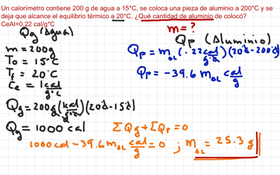 Un calorímetro contiene 200 g de agua a 15°C, se coloca una pieza de aluminio a 200°C y se
deja que alcance el equilibrio térmico a 20°C. ¿Qué cantidad de aluminio de colocó?
CeAl=0.22 cal/g°C
m=?
Qg (Agua)
m=200g
To=15°C
Tf=20°C
Ce=1 cal/g·°C
Qg=200g(1 cal/g·°C)(20°C-15°C)
Qg=1000 cal
Qp (Aluminio)
Qp=mAL(.22 cal/g·°C)(20°C-200°C)
Qp=-39.6 mAL cal/g
ΣQg+ΣQp=0
1000cal-39.6mAL cal/g=0 ; mAL=25.3 g